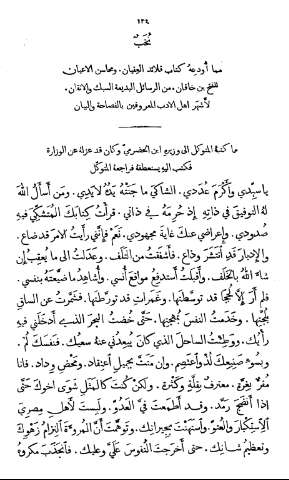 ١٣٤
نُخَب
مما أودعهُ كتاب قلائد العقيان. ومحاسن الاعيان
للفتح بن خاقان. من الرسائل البديعة السبك والاتقان.
لأشهر اهل الادب المعروفين بالفصاحة والبيان
ما كتبهُ المتوكل الى وزيرهِ ابن الحضرميّ وكان قد عزلهُ عن الوزارة
فكتب اليهِ يستعطفهُ فراجعهُ المتوكل
يا سيّدي وأَكرَمَ عُدَدي. الشاكيَ ما جَنَتْهُ يَدُهُ لا يَدي. ومَن أَسأَلُ اللهَ
لهُ التوفيقَ في ذاتِهِ إذ حُرِمَهُ في ذاتي. قرأتُ كِتابَكَ المُتشكّيَ فيهِ
صُدودي. وإعراضي عنكَ غايةَ مجهودي. نَعَمْ فإنّني رأيتُ الأمرَ قد ضاعَ.
والإدبارَ قد انتشرَ وذاعَ. فأَشفقتُ من التَّلَفِ. وعدَلتُ الى ما يُعقِبُ إن
شاءَ اللهُ بالخَلَفِ. وأَقبلتُ أَستدفعُ مواقعَ أُنسي. وأُشاهدُ ما ضيّعتَهُ بنفسي.
فلم أرَ إلّا لُجَجًا قد توسّطتَها. وغَمَراتٍ قد تورّطتَها. فشمّرتُ عن الساقِ
لِلُجّتِها. وخدَمتُ النفسَ بمُهجتِها. حتّى خُضتُ البحرَ الذي أَدخلَني فيهِ
رأيُكَ. ووطِئتُ الساحلَ الذي كانَ يُبعدُني عنهُ سعيُكَ. فنفسَكَ لُمْ.
وبسوءِ صنيعِكَ لُذْ واعتصِمْ. وإن مَننتَ بجميلِ اعتقادٍ. ومحضِ ودادٍ. فأنا
مُقِرٌّ بقِلّةٍ. معترفٌ بقِلّةٍ وكَثرةٍ. ولكن كنتَ كالمثلِ شَوى اخوكَ حتّى
إذا أنضجَ رمَّدَ. وقد أطمعتَ فيَّ العدوَّ. ولبِستَ لأهلِ مِصريَ
الاستكبارَ والعُتُوَّ. واستهنتَ بجيرانِكَ. وتوهّمتَ أنَّ المُروءةَ التزامُ زَهوِكَ
وتعظيمُ شأنِكَ. حتى أخرجتَ النفوسَ عليَّ وعليكَ. فانجذبَ مكروهُ